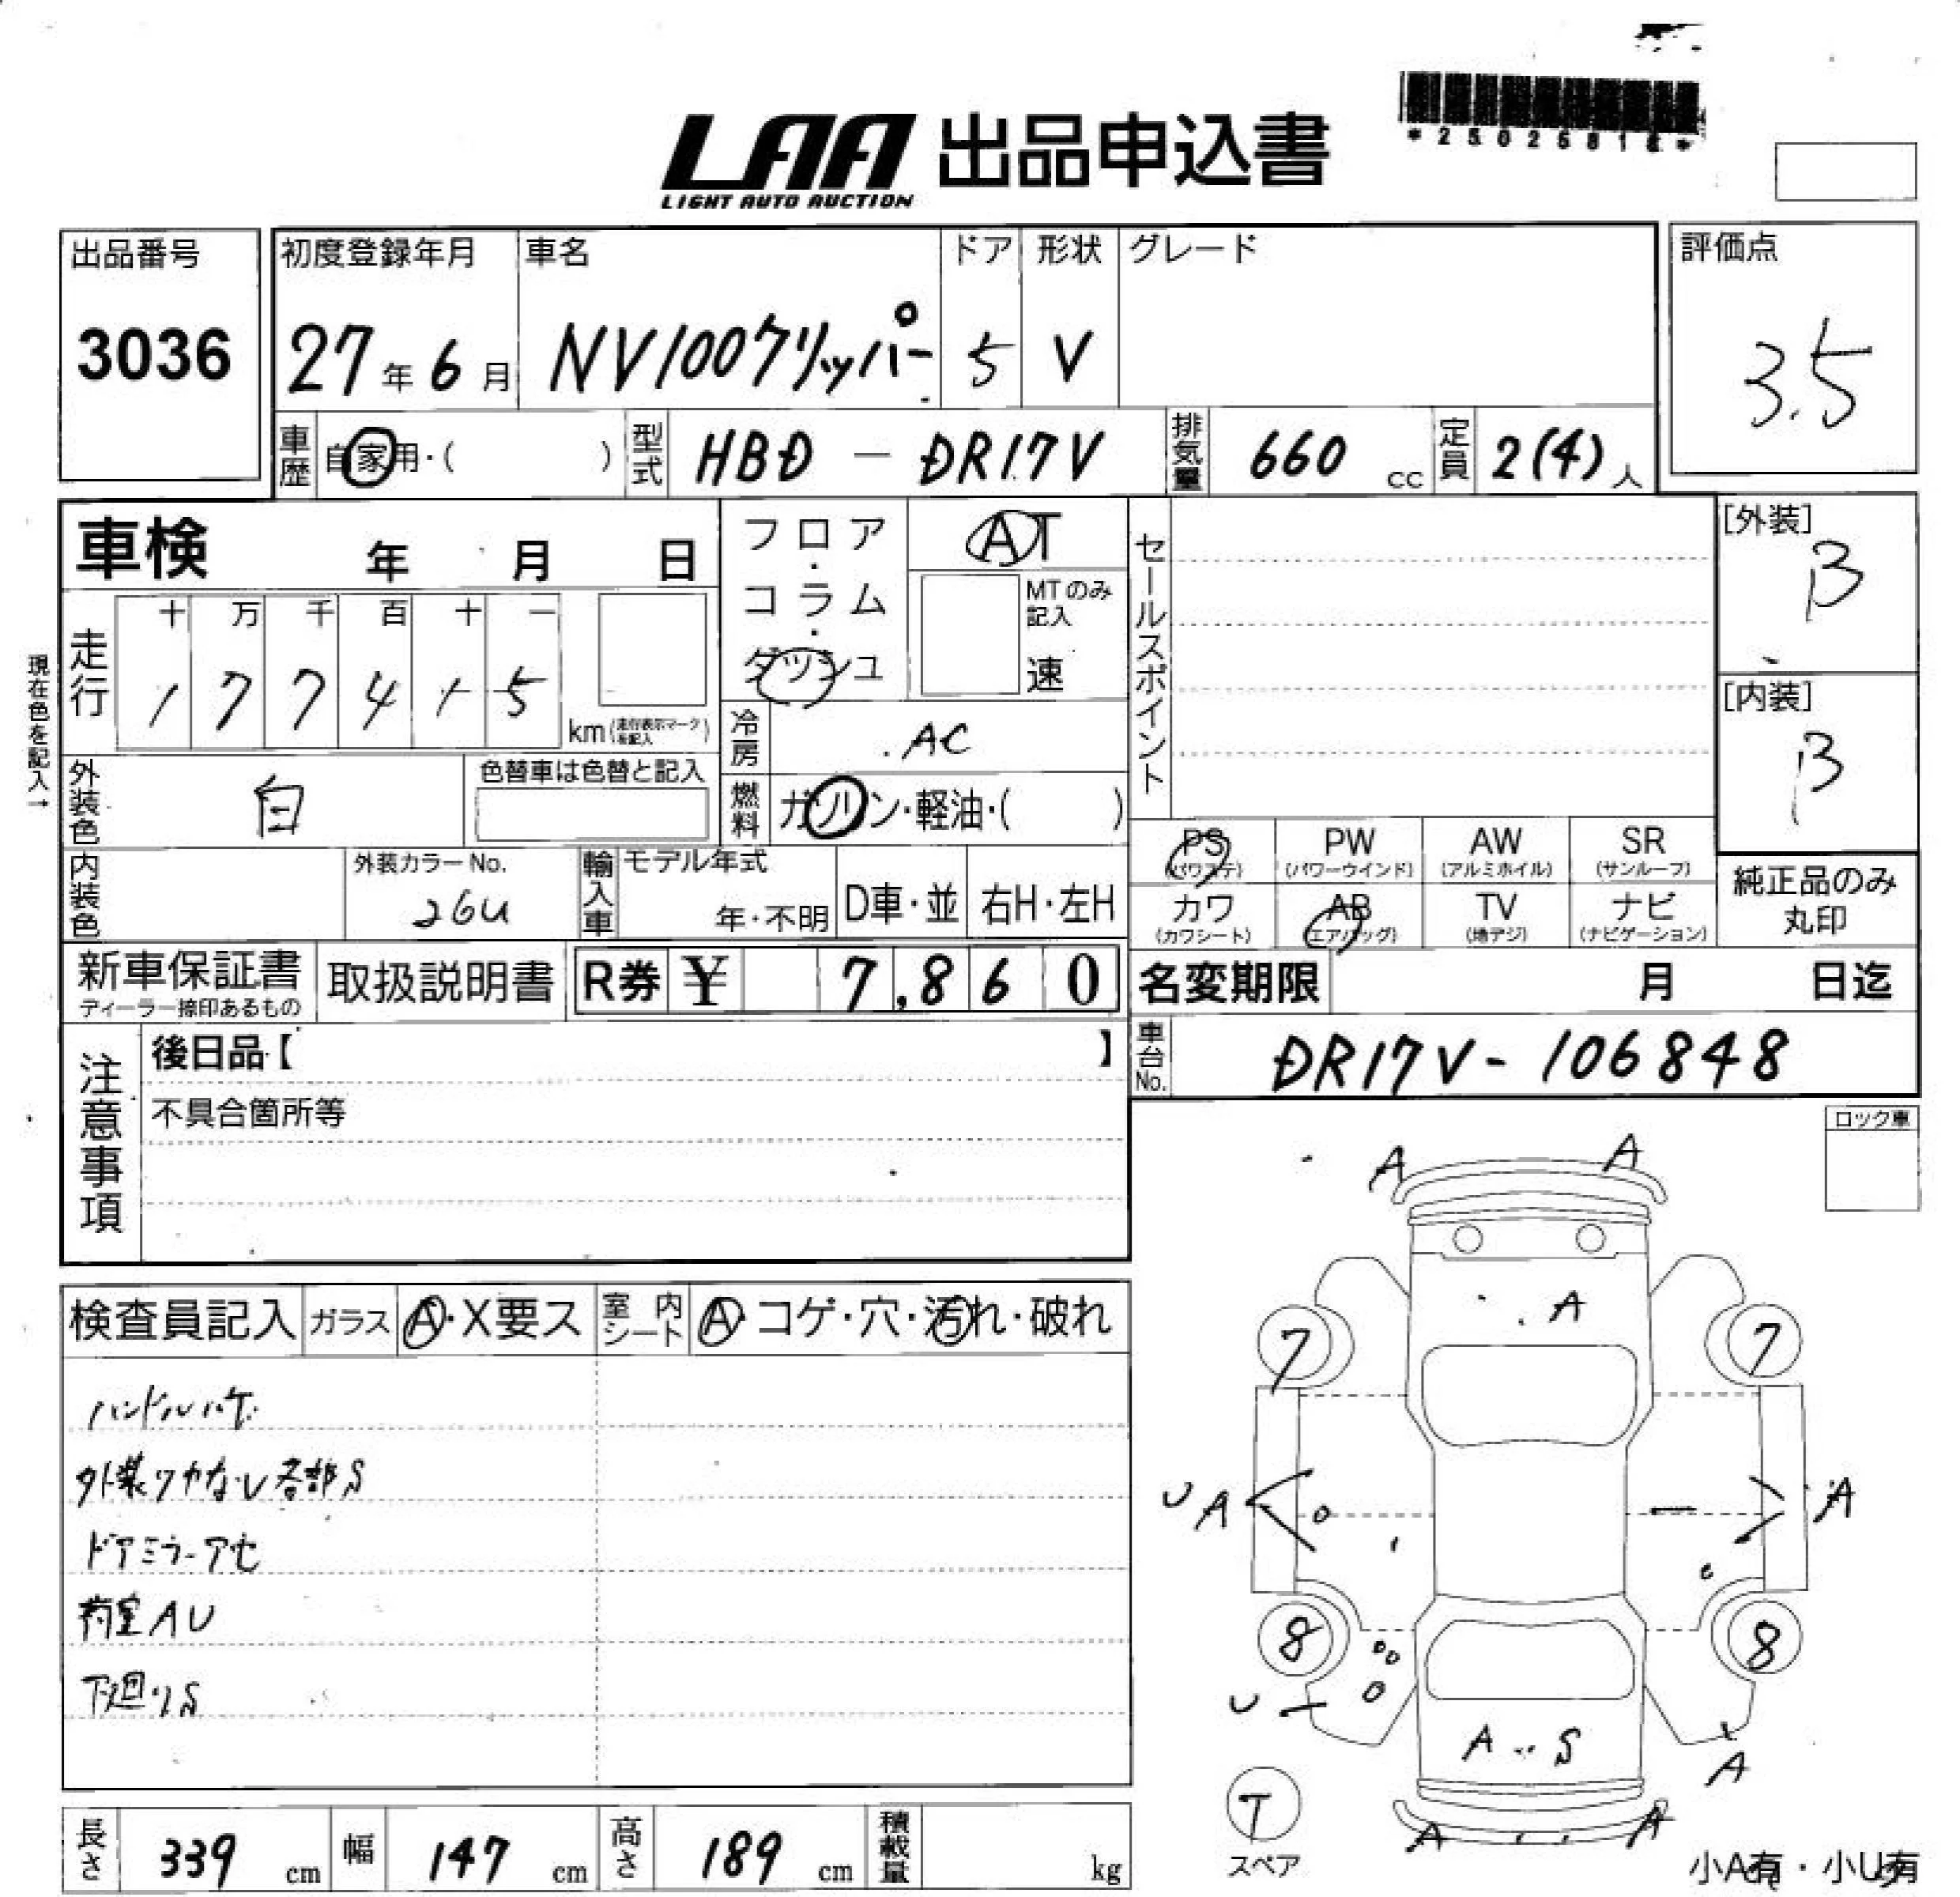 *25025818*
LAA 出品申込書
LIGHT AUTO AUCTION
出品番号
3036
初度登録年月
27年6月
車名
NV100クリッパー
ドア
5
形状
V
グレード
評価点
3.5
車歴
自家用・( )
型式
HBD - DR17V
排気量
660 cc
定員
2(4)人
車検 年 月 日
フロア・コラム・ダッシュ
AT
MTのみ記入
速
セールスポイント
[外装]
B
[内装]
B
現在色を記入→
走行
十 万 千 百 十 一
1 7 7 4 1 5
km(走行表示マークを記入)
冷房
AC
外装色
白
色替車は色替と記入
燃料
ガソリン・軽油・( )
内装色
外装カラーNo.
26U
輸入車
モデル年式
年・不明
D車・並
右H・左H
PS
(パワステ)
PW
(パワーウインド)
AW
(アルミホイル)
SR
(サンルーフ)
カワ
(カワシート)
AB
(エアバッグ)
TV
(地デジ)
ナビ
(ナビゲーション)
純正品のみ
丸印
新車保証書
ディーラー捺印あるもの
取扱説明書
R券 ¥ 7,860
名変期限 月 日迄
車台No.
DR17V-106848
注意事項
後日品【 】
不具合箇所等
ロック車
検査員記入
ガラス
A・X要ス
室内シート
A・コゲ・穴・汚れ・破れ
ハンドルハゲ
外装ツヤなし各部S
ドアミラーアセ
荷室AU
下廻りS
A A
A
7 7
U A A
8 8
U
A S
A
T
スペア
A A
小A有・小U有
長さ
339 cm
幅
147 cm
高さ
189 cm
積載量
kg